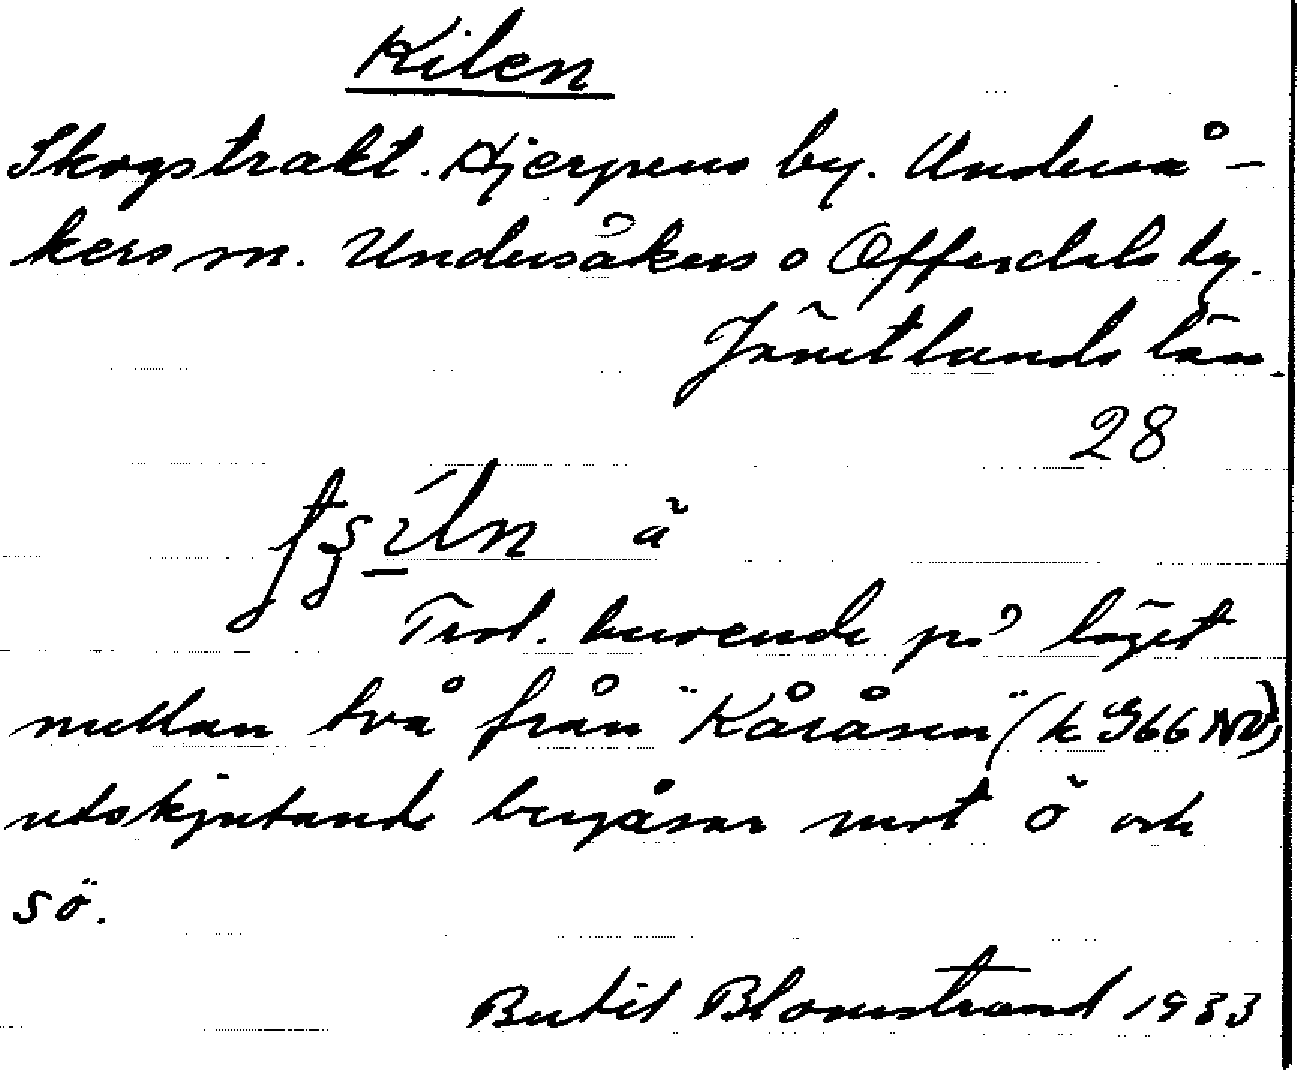 Kilen
Skogstrakt. Hjerpens by. Underså-
kers sn. Undersåkers o Offerdals tg.
Jämtlands län.
28
ä
Trol. beroende på läget
mellan två från "Kåråsen" (k 966 NV)
utskjutande bergåsar mot ö och
sö.
Bertil Blomstrand 1933